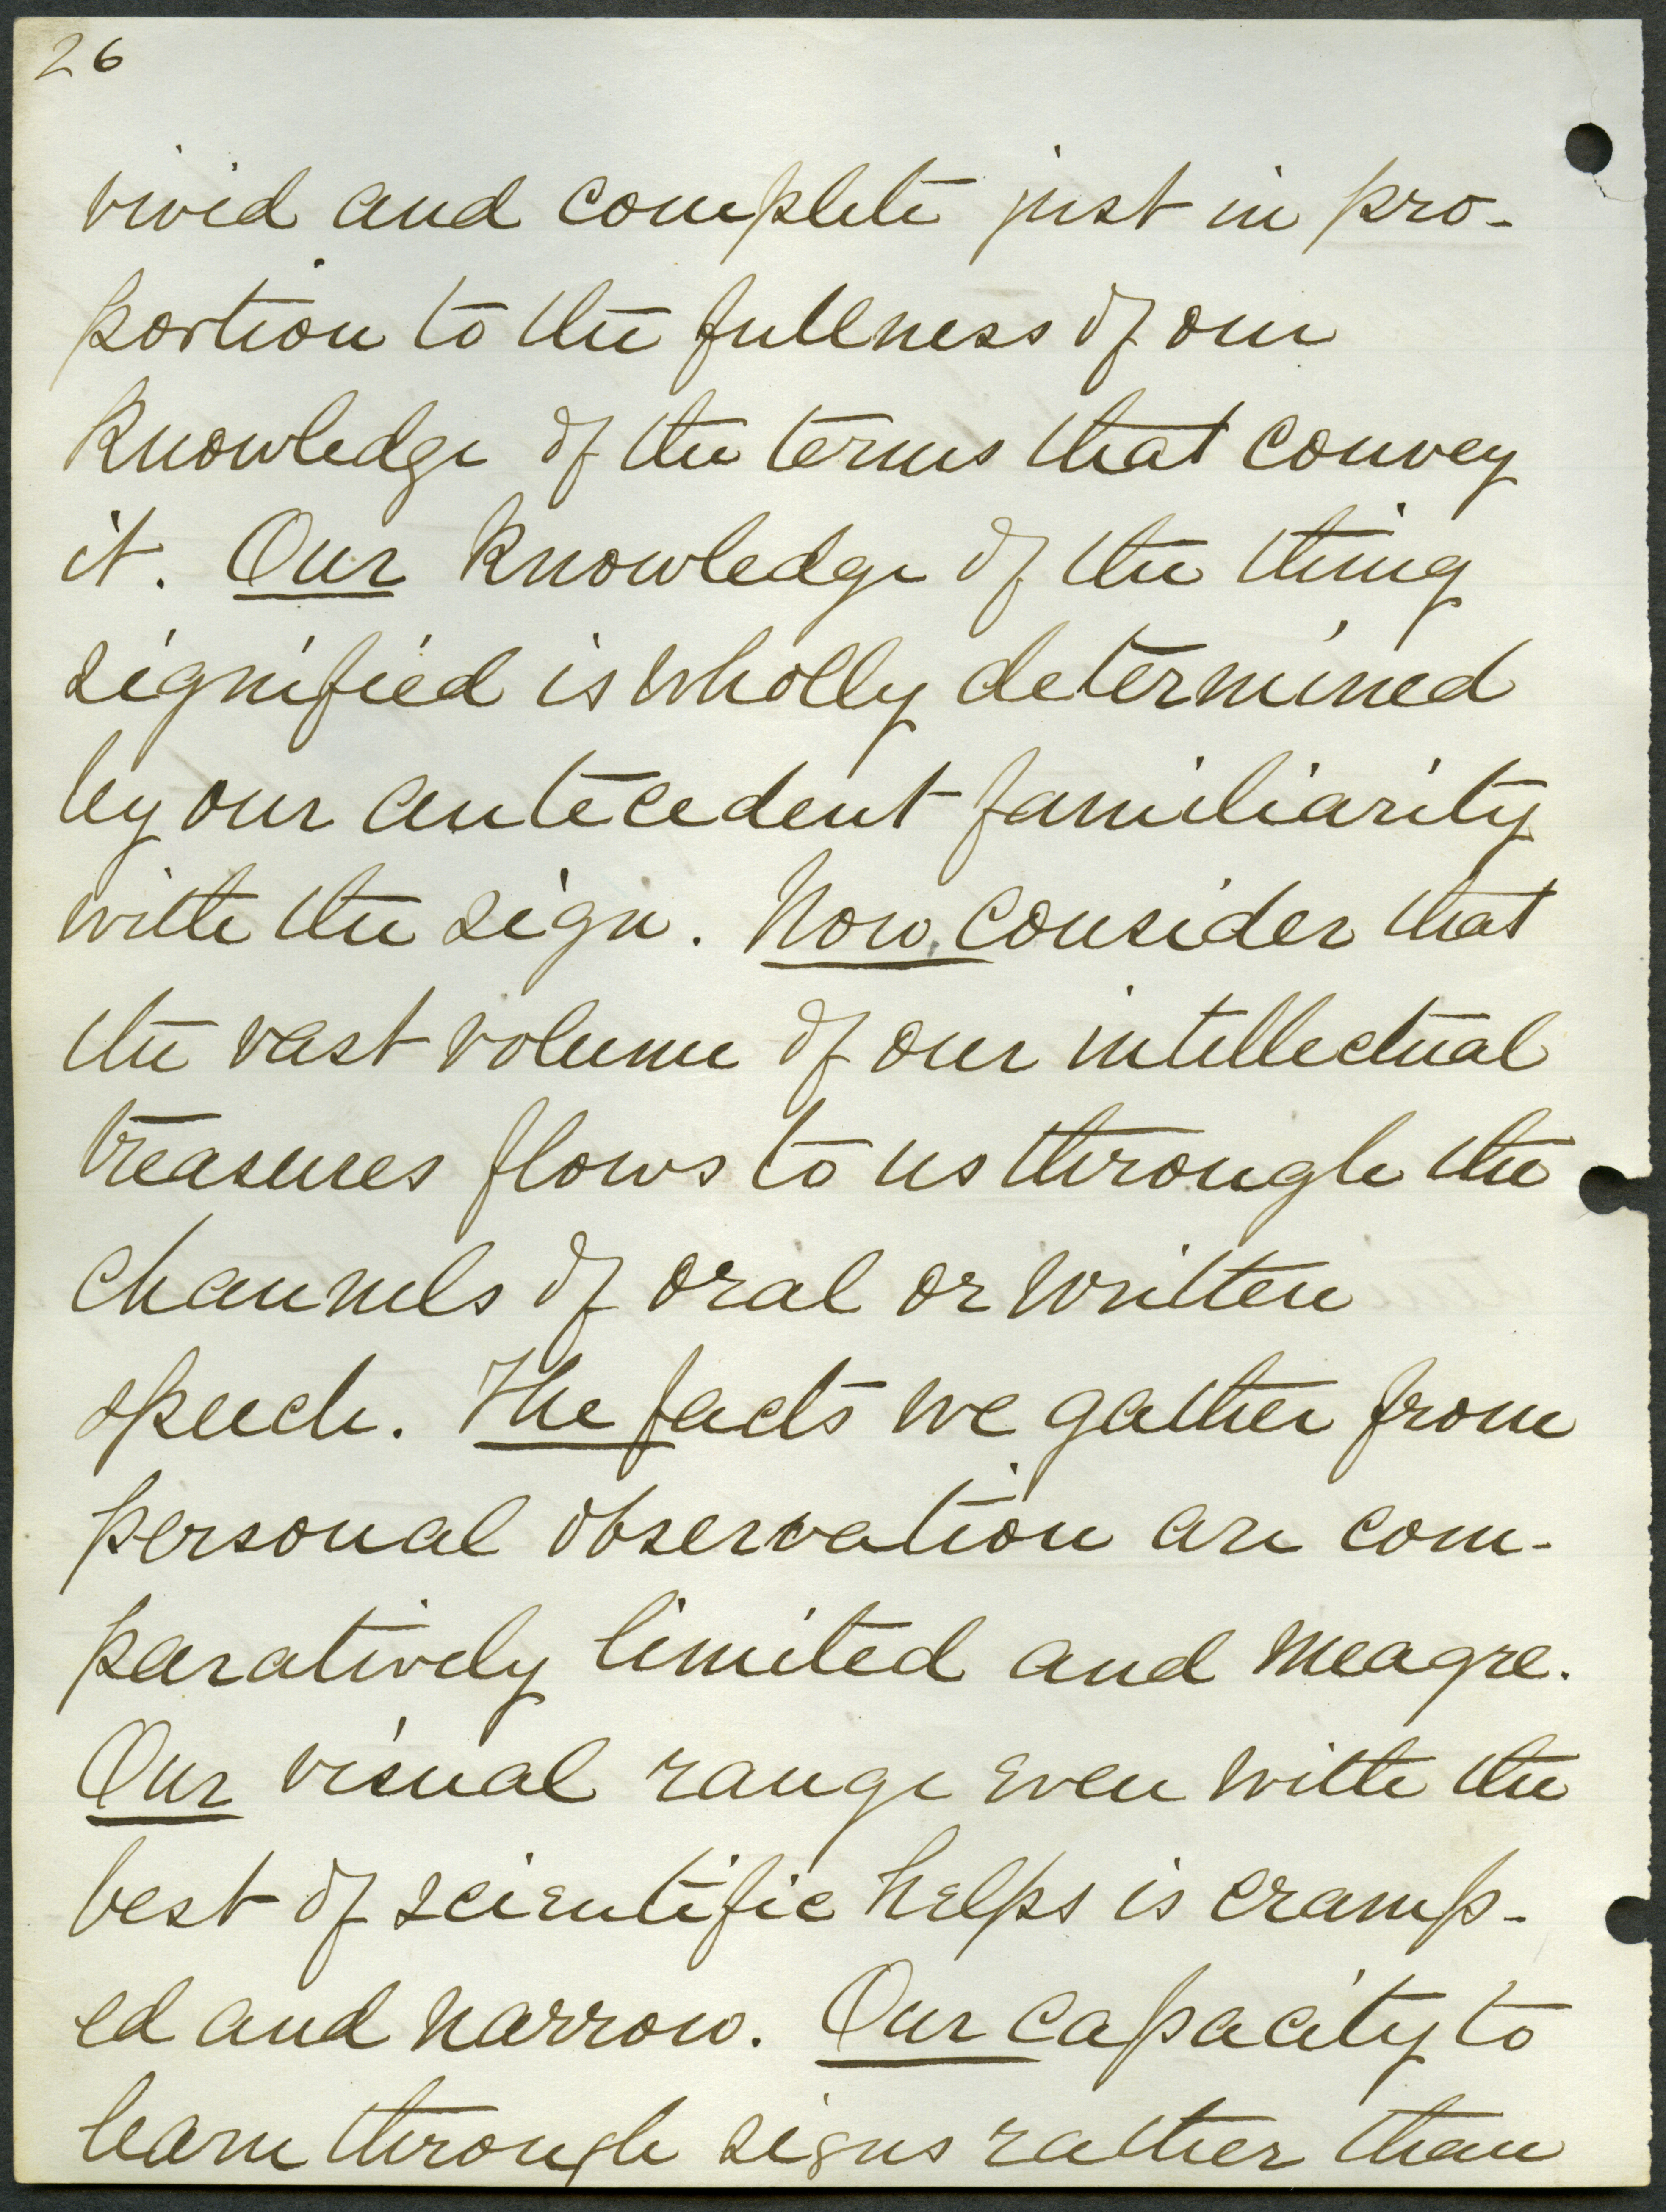 26
vivid and complete just in pro-
portion to the fullness of our
knowledge of the terms that convey
it. Our knowledge of the thing
signified is wholly determined
by our antecedent familiarity
with the sign. Now, consider that
the vast volume of our intellectual
treasures flows to us through the
channels of oral or written
speech. The facts we gather from
personal observation are com-
paratively limited and meagre.
Our visual range even with the
best of scientific helps is cramp-
ed and narrow. Our capacity to
learn through signs rather than